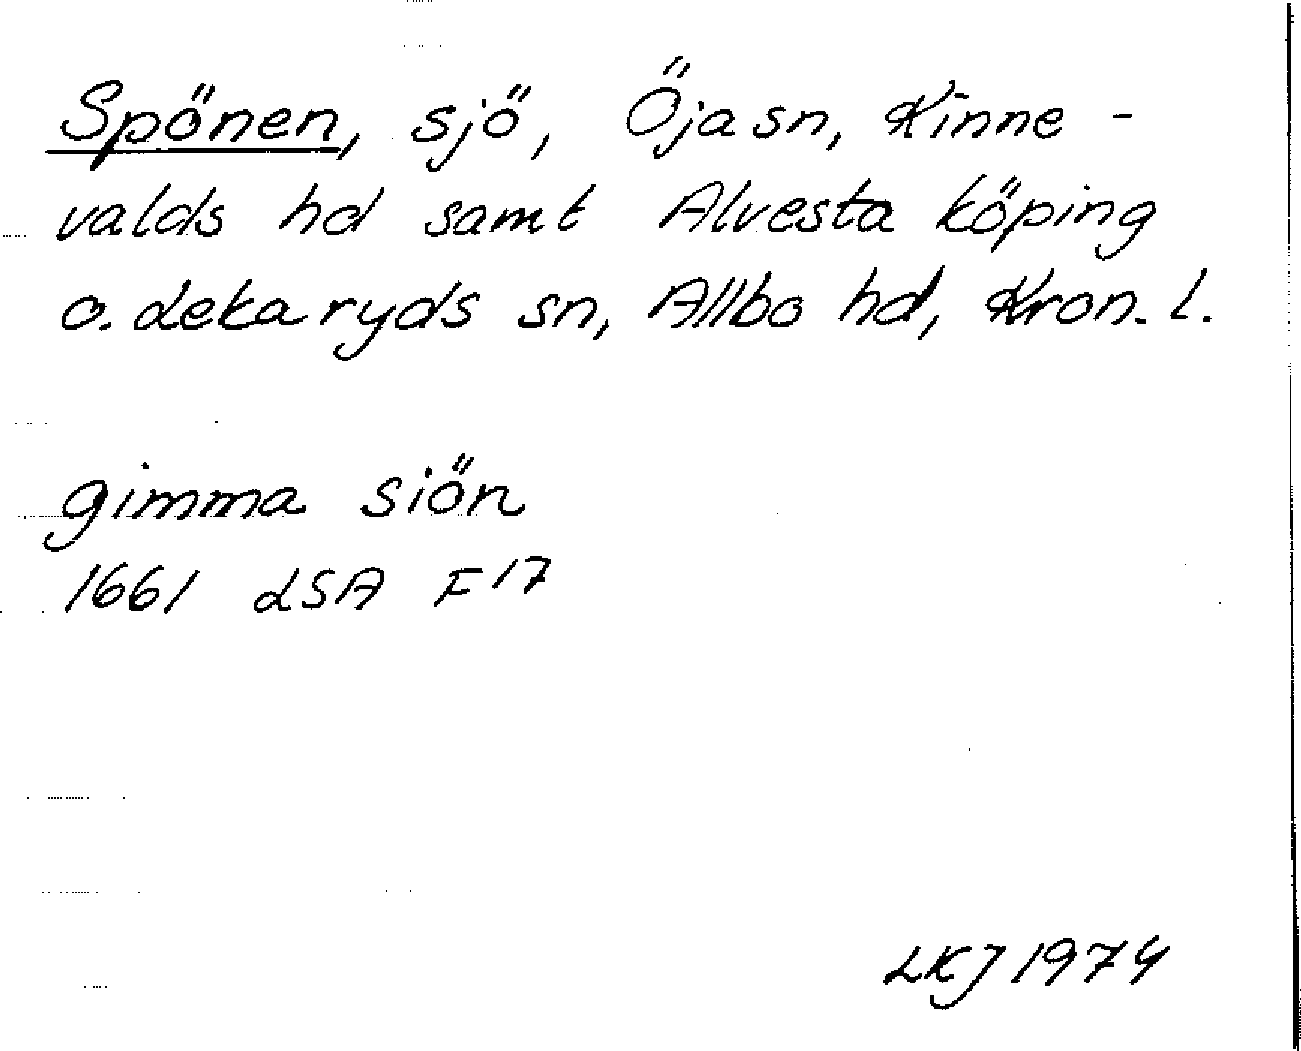 Spönen, sjö, Öja sn, Kinne-
valds hd samt Alvesta köping
o. Lekaryds sn, Allbo hd, Kron. l.
gimma siön
1661 LSA F 17
LKJ 1974